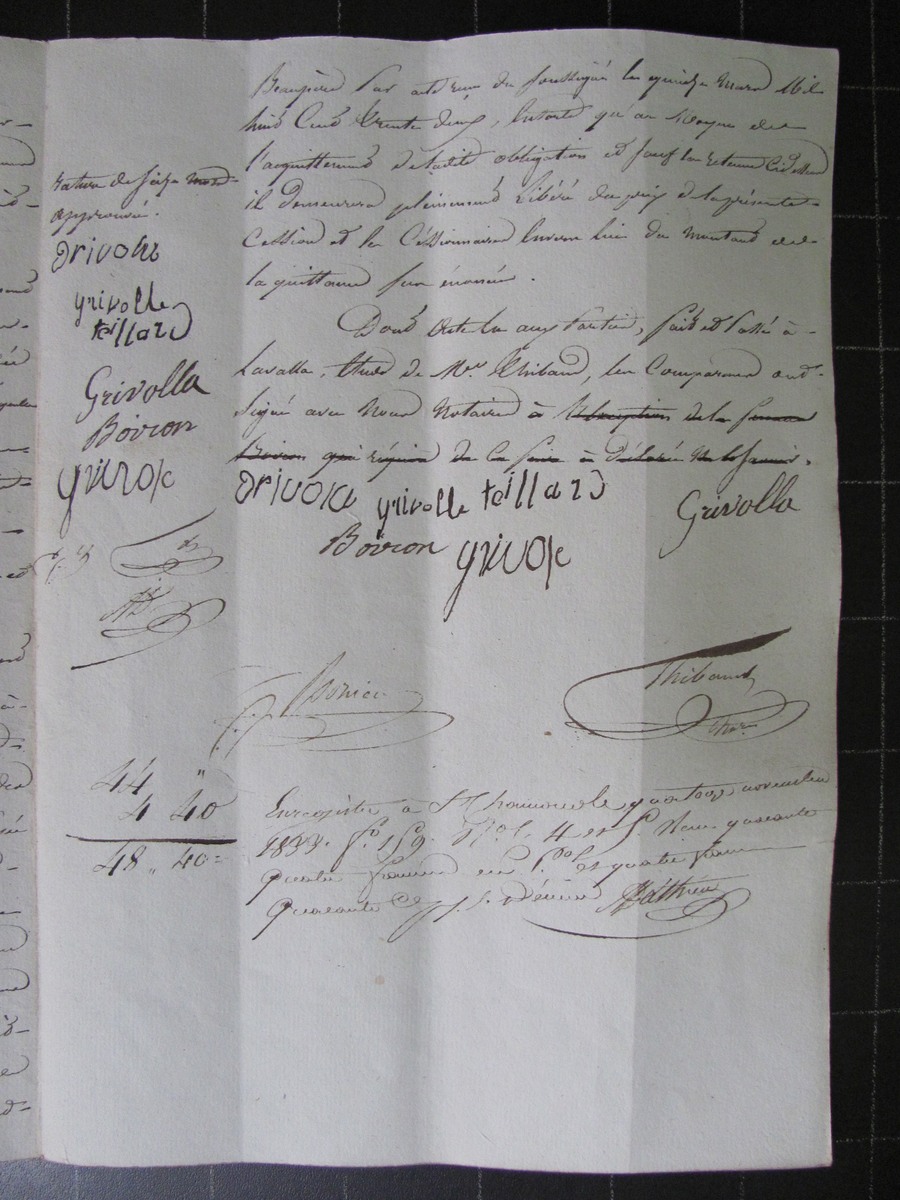 Beaujeu par acte reçu du soussigné le quinze mars Mil
huit Cent trente deux, ensorte qu'au moyen de
l'acquittement de ladite obligation et sauf la retenue Cidessus
il demeurera pleinement Libéré du prix de la présente
Cession et les Cessionnaires envers lui du montant de
la quittance sus énoncée.
Dont Acte lu aux Parties, fait et Passé à
Lavalla, Etude de Me Thibaud, les Comparans ont
signé avec Nous Notaire à l'exception de la femme
Boiron qui requise de ce faire a déclaré ne le savoir.
rature de seize mots
approuvée.
grivola
grivolle
teillard
Grivolla
Boiron
grivole
grivola grivolle teillard Grivolla
Boiron grivole
Thibaud
Nore
44 "
4 40
48 " 40
Enregistré à St Chamond le quatorze novembre
1833. fo 159. Ro C. 4 et S. Reçu quarante
quatre francs en Pal et quatre francs
quarante Ces p. s. Décime Mathieu